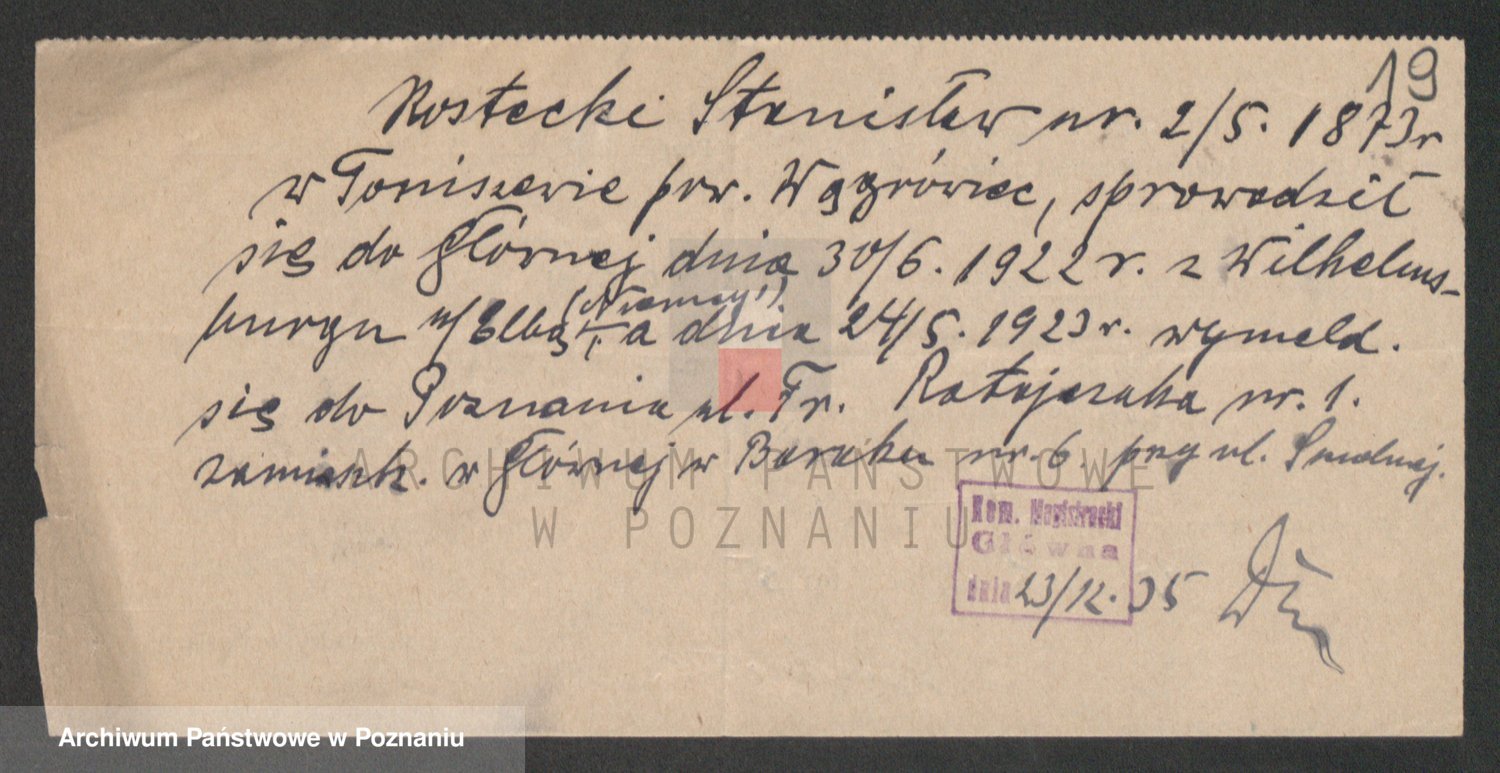 19
Rostecki Stanisław ur. 2/5. 1873 r
w Toniszewie pow. Wągrówiec, sprowadził
się do Głównej dnia 30/6. 1922 r. z Wilhelms-
burgu n/Elbą (Niemcy) a dnia 24/5. 1923 r. wymeld.
się do Poznania ul. Fr. Ratajczaka nr. 1.
zamieszk. w Głównej w Baraku nr. 6. przy ul. Smolnej.
Kom. Magistracki
Główna
dnia 23/12. 35
ARCHIWUM PAŃSTWOWE
W POZNANIU
Archiwum Państwowe w Poznaniu